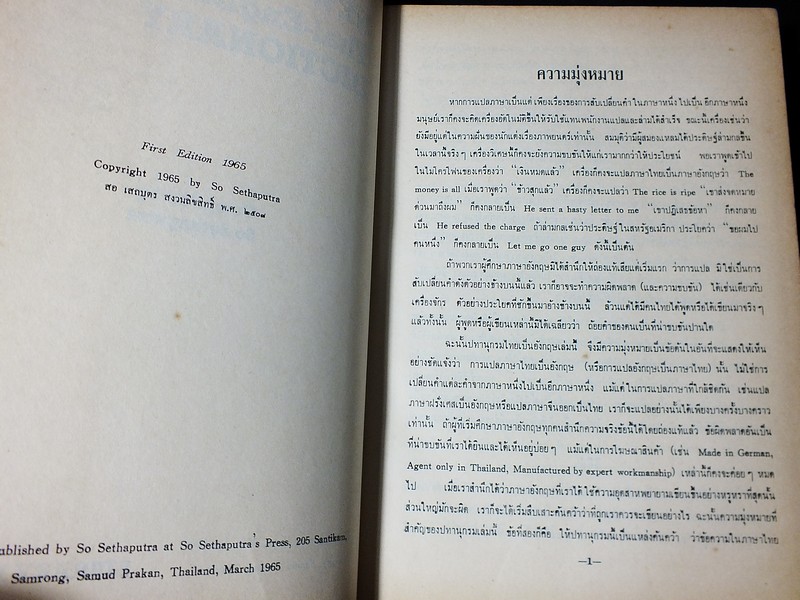 First Edition 1965
Copyright 1965 by So Sethaputra
สอ เสถบุตร สงวนลิขสิทธิ์ พ.ศ. ๒๕๐๘
ublished by So Sethaputra at So Sethaputra's Press, 205 Santikam,
Samrong, Samud Prakan, Thailand, March 1965
ความมุ่งหมาย
หากการแปลภาษาเป็นแต่ เพียงเรื่องของการสับเปลี่ยนคำ ในภาษาหนึ่ง ไปเป็น อีกภาษาหนึ่ง
มนุษย์เราก็คงจะคิดเครื่องอัตโนมัติขึ้นให้รับใช้แทนพนักงานแปลและล่ามได้สำเร็จ ขณะนี้เครื่องเช่นว่า
ยังมีอยู่แต่ในความฝันของนักแต่งเรื่องภาพยนตร์เท่านั้น สมมุติว่ามีผู้สมองแหลมได้ประดิษฐ์ล่ามกลขึ้น
ในเวลานี้จริง ๆ เครื่องวิเศษนี้ก็คงจะยังความขบขันให้แก่เรามากกว่าให้ประโยชน์ พอเราพูดเข้าไป
ในไมโครโฟนของเครื่องว่า “เงินหมดแล้ว” เครื่องก็คงจะแปลภาษาไทยเป็นภาษาอังกฤษว่า The
money is all เมื่อเราพูดว่า “ข้าวสุกแล้ว” เครื่องก็คงจะแปลว่า The rice is ripe “เขาส่งจดหมาย
ด่วนมาถึงผม” ก็คงกลายเป็น He sent a hasty letter to me “เขาปฏิเสธข้อหา” ก็คงกลาย
เป็น He refused the charge ถ้าล่ามกลเช่นว่าประดิษฐ์ ในสหรัฐอเมริกา ประโยคว่า “ขอผมไป
คนหนึ่ง” ก็คงกลายเป็น Let me go one guy ดังนี้เป็นต้น
ถ้าพวกเราผู้ศึกษาภาษาอังกฤษมิได้สำนึกให้ถ่องแท้เสียแต่เริ่มแรก ว่าการแปล มิใช่เป็นการ
สับเปลี่ยนคำดังตัวอย่างข้างบนนี้แล้ว เราก็อาจจะทำความผิดพลาด (และความขบขัน) ได้เช่นเดียวกับ
เครื่องจักร ตัวอย่างประโยคที่ชักขึ้นมาอ้างข้างบนนี้ ล้วนแต่ได้มีคนไทยได้พูดหรือได้เขียนมาจริง ๆ
แล้วทั้งนั้น ผู้พูดหรือผู้เขียนเหล่านี้มิได้เฉลียวว่า ถ้อยคำของตนเป็นที่น่าขบขันปานใด
ฉะนั้นปทานุกรมไทยเป็นอังกฤษเล่มนี้ จึงมีความมุ่งหมายเป็นข้อต้นในอันที่จะแสดงให้เห็น
อย่างชัดแจ้งว่า การแปลภาษาไทยเป็นอังกฤษ (หรือการแปลอังกฤษเป็นภาษาไทย) นั้น ไม่ใช่การ
เปลี่ยนคำแต่ละคำจากภาษาหนึ่งไปเป็นอีกภาษาหนึ่ง แม้แต่ในการแปลภาษาที่ใกล้ชิดกัน เช่นแปล
ภาษาฝรั่งเศสเป็นอังกฤษหรือแปลภาษาจีนออกเป็นไทย เราก็จะแปลอย่างนั้นได้เพียงบางครั้งบางคราว
เท่านั้น ถ้าผู้ที่เริ่มศึกษาภาษาอังกฤษทุกคนสำนึกความจริงข้อนี้ได้โดยถ่องแท้แล้ว ข้อผิดพลาดอันเป็น
ที่น่าขบขันที่เราได้ยินและได้เห็นอยู่บ่อย ๆ แม้แต่ในการโฆษณาสินค้า (เช่น Made in German,
Agent only in Thailand, Manufactured by expert workmanship) เหล่านี้ก็คงจะค่อย ๆ หมด
ไป เมื่อเราสำนึกได้ว่าภาษาอังกฤษที่เราได้ ใช้ความอุตสาหพยายามเขียนขึ้นอย่างหรูหราที่สุดนั้น
ส่วนใหญ่มักจะผิด เราก็จะได้เริ่มสืบเสาะค้นคว้าว่าที่ถูกเราควรจะเขียนอย่างไร ฉะนั้นความมุ่งหมายที่
สำคัญของปทานุกรมเล่มนี้ ข้อที่สองก็คือ ให้ปทานุกรมนี้เป็นแหล่งค้นคว้า ว่าข้อความในภาษาไทย
—1—